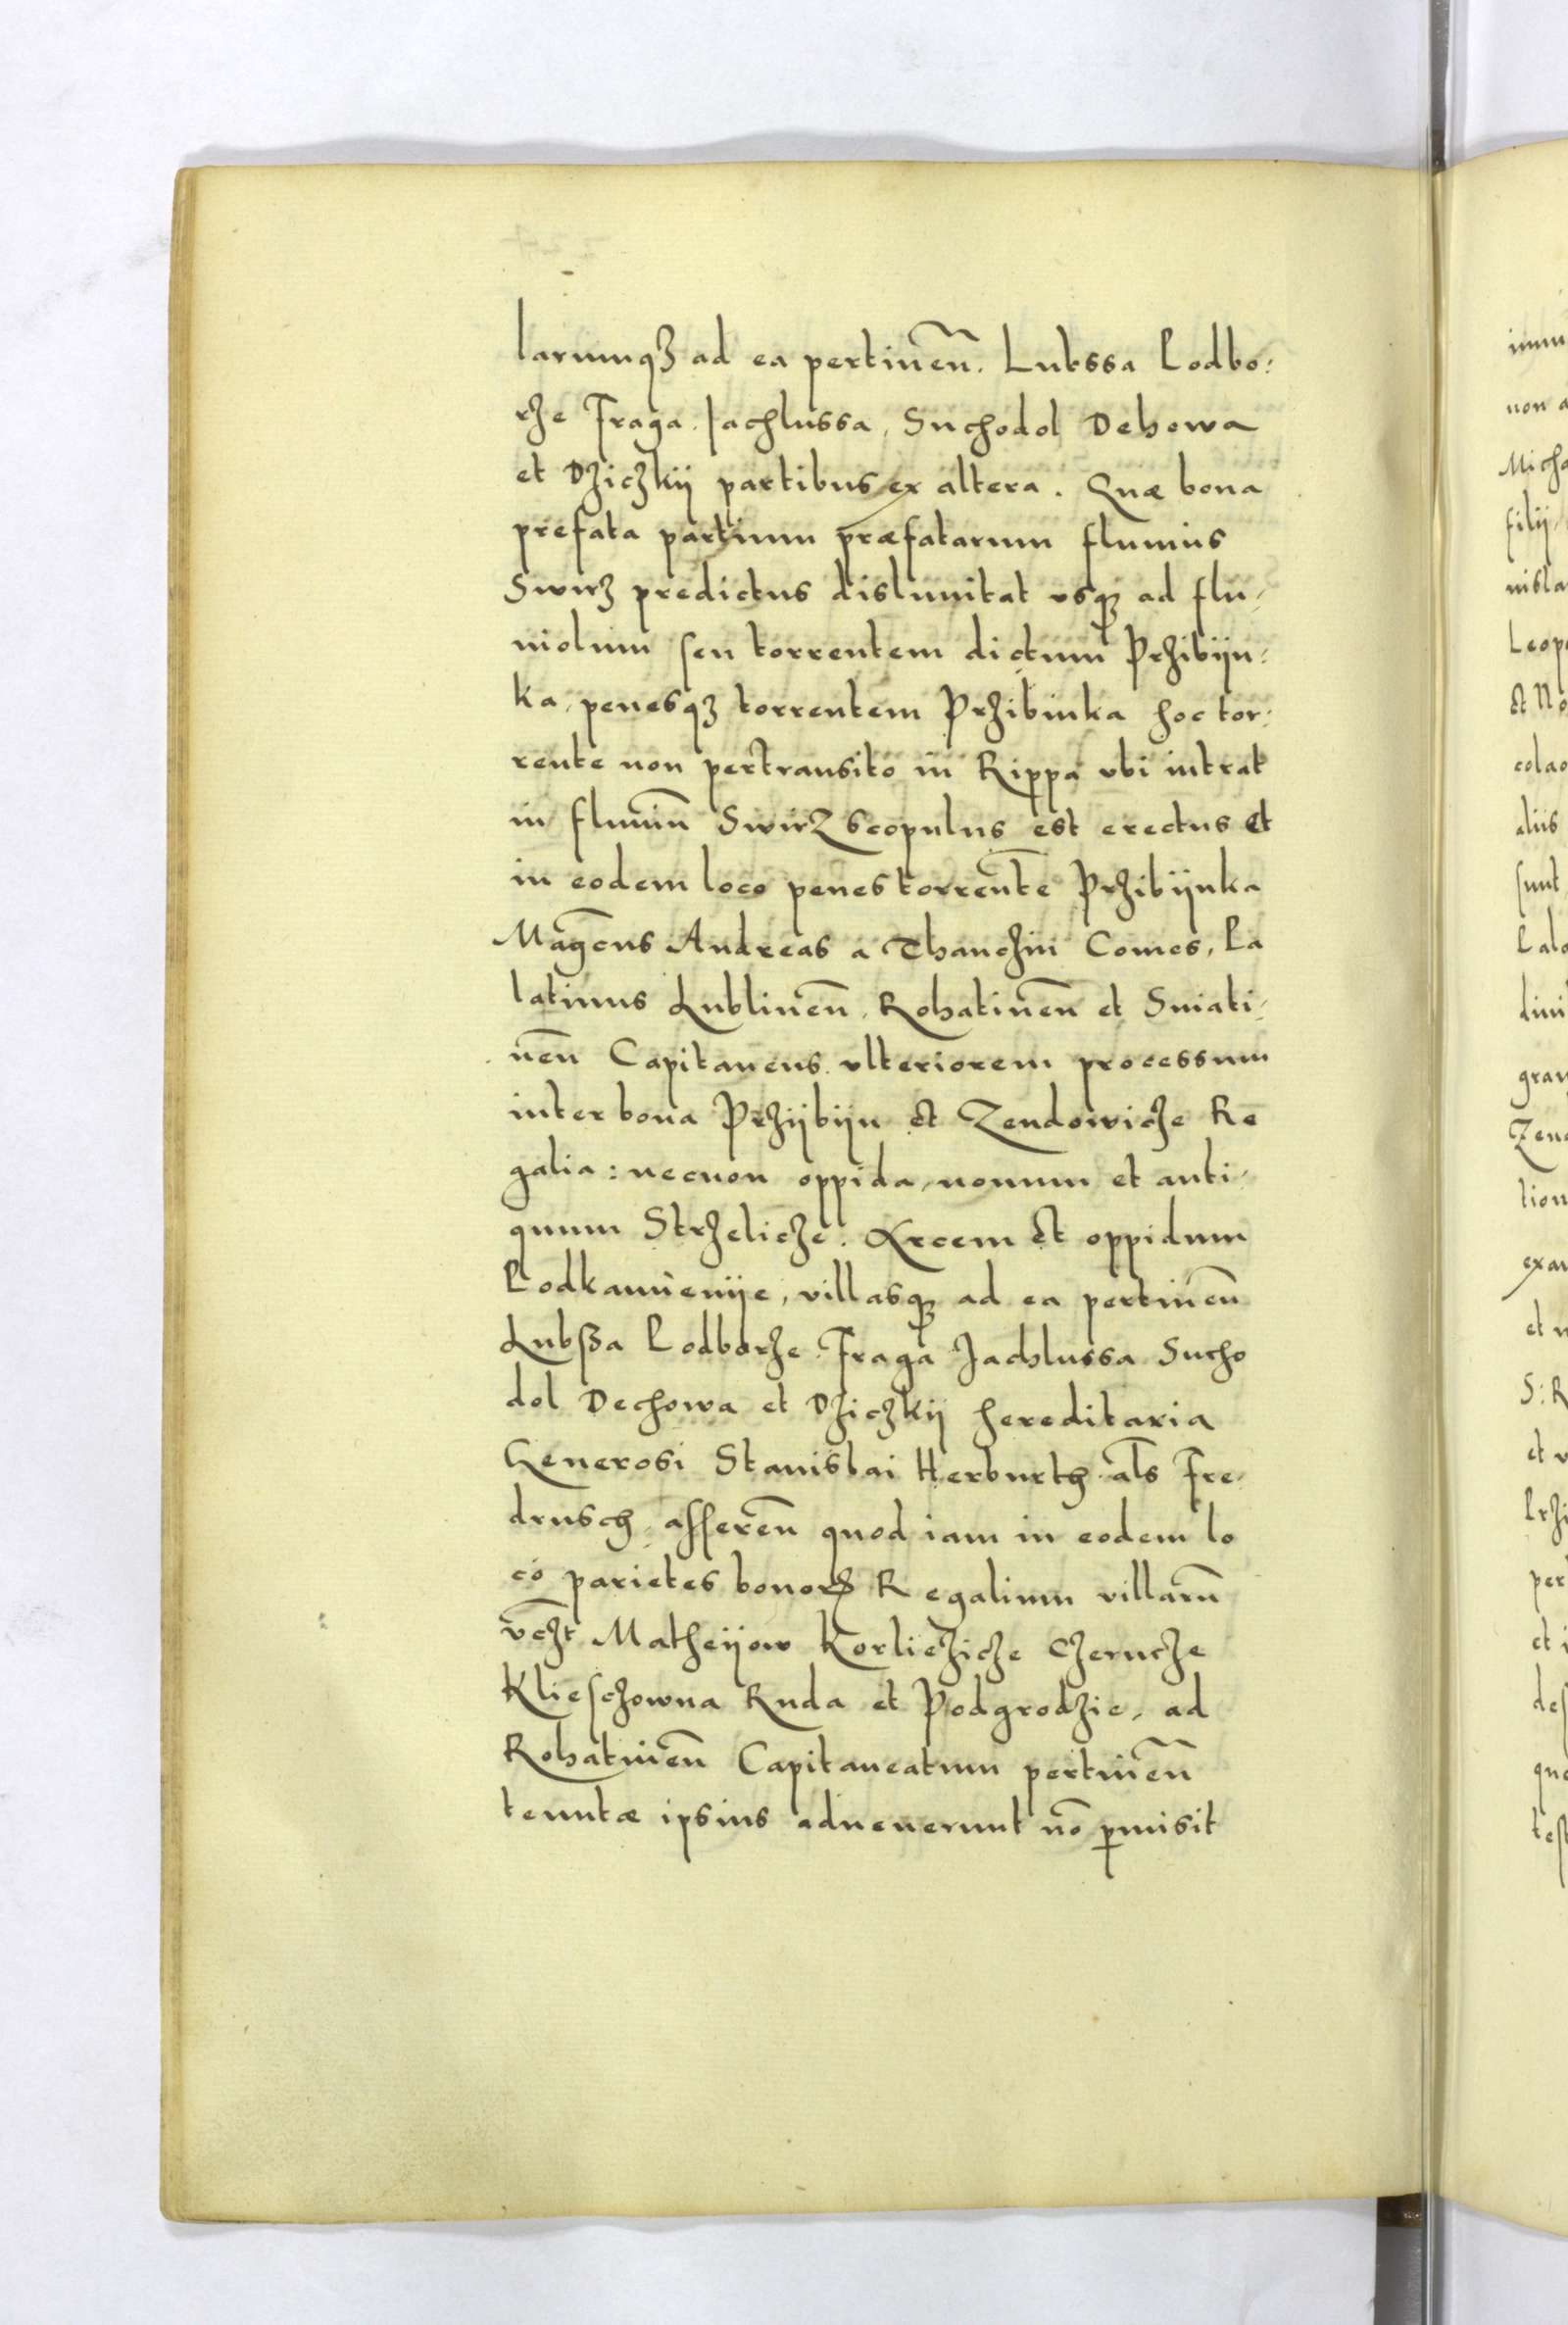 larumqꝫ ad ea pertineñ. Lubssa Podbo:
rze Fraga. Jachlussa, Suchodol Dehowa
et Dziczkij partibus ex altera. Quæ bona
prefata partium præfatarum fluuius
Swirz predictus dislimitat vsqꝫ ad flu-
uiolum seu torrentem dictum Przibijn:
ka, penesqꝫ torrentem Przibinka hoc tor:
rente non pertransito in Rippa vbi intrat
in fluuiū Swirz scopulus est erectus et
in eodem loco penes torrentē Przibijnka
Magcūs Andreas a Thanczin Comes, Pa
latinus Lublineñ, Rohatineñ et Sniati-
neñ Capitaneus vlteriorem processum
inter bona Przijbijn et Zendowicze Re
galia: necnon oppida, nouum et anti-
quum Strzelicze. Arcem et oppidum
Podkamienije, villasqꝫ ad ea pertineñ
Lubßa Podborze Fraga Jachlussa Sucho
dol Dechowa et Dziczkij hereditaria
Generosi Stanislai Herburth als Fre-
drusch, assereñ quod iam in eodem lo
co parietes bonorꝫ Regalium villarū
vczt Matheijow Korliczicze Czerncze
Klieschowna Ruda et Podgrodzie, ad
Rohatineñ Capitaneatum pertineñ
tenutæ ipsius aduenerunt nō pmisit